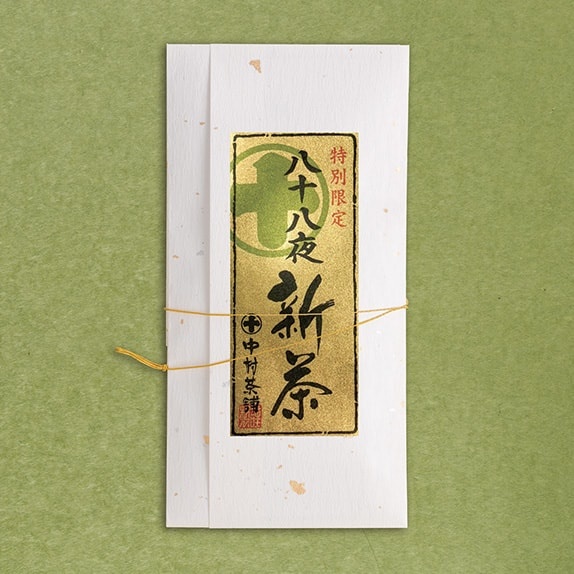 特別限定
八十八夜
新茶
中村茶舗